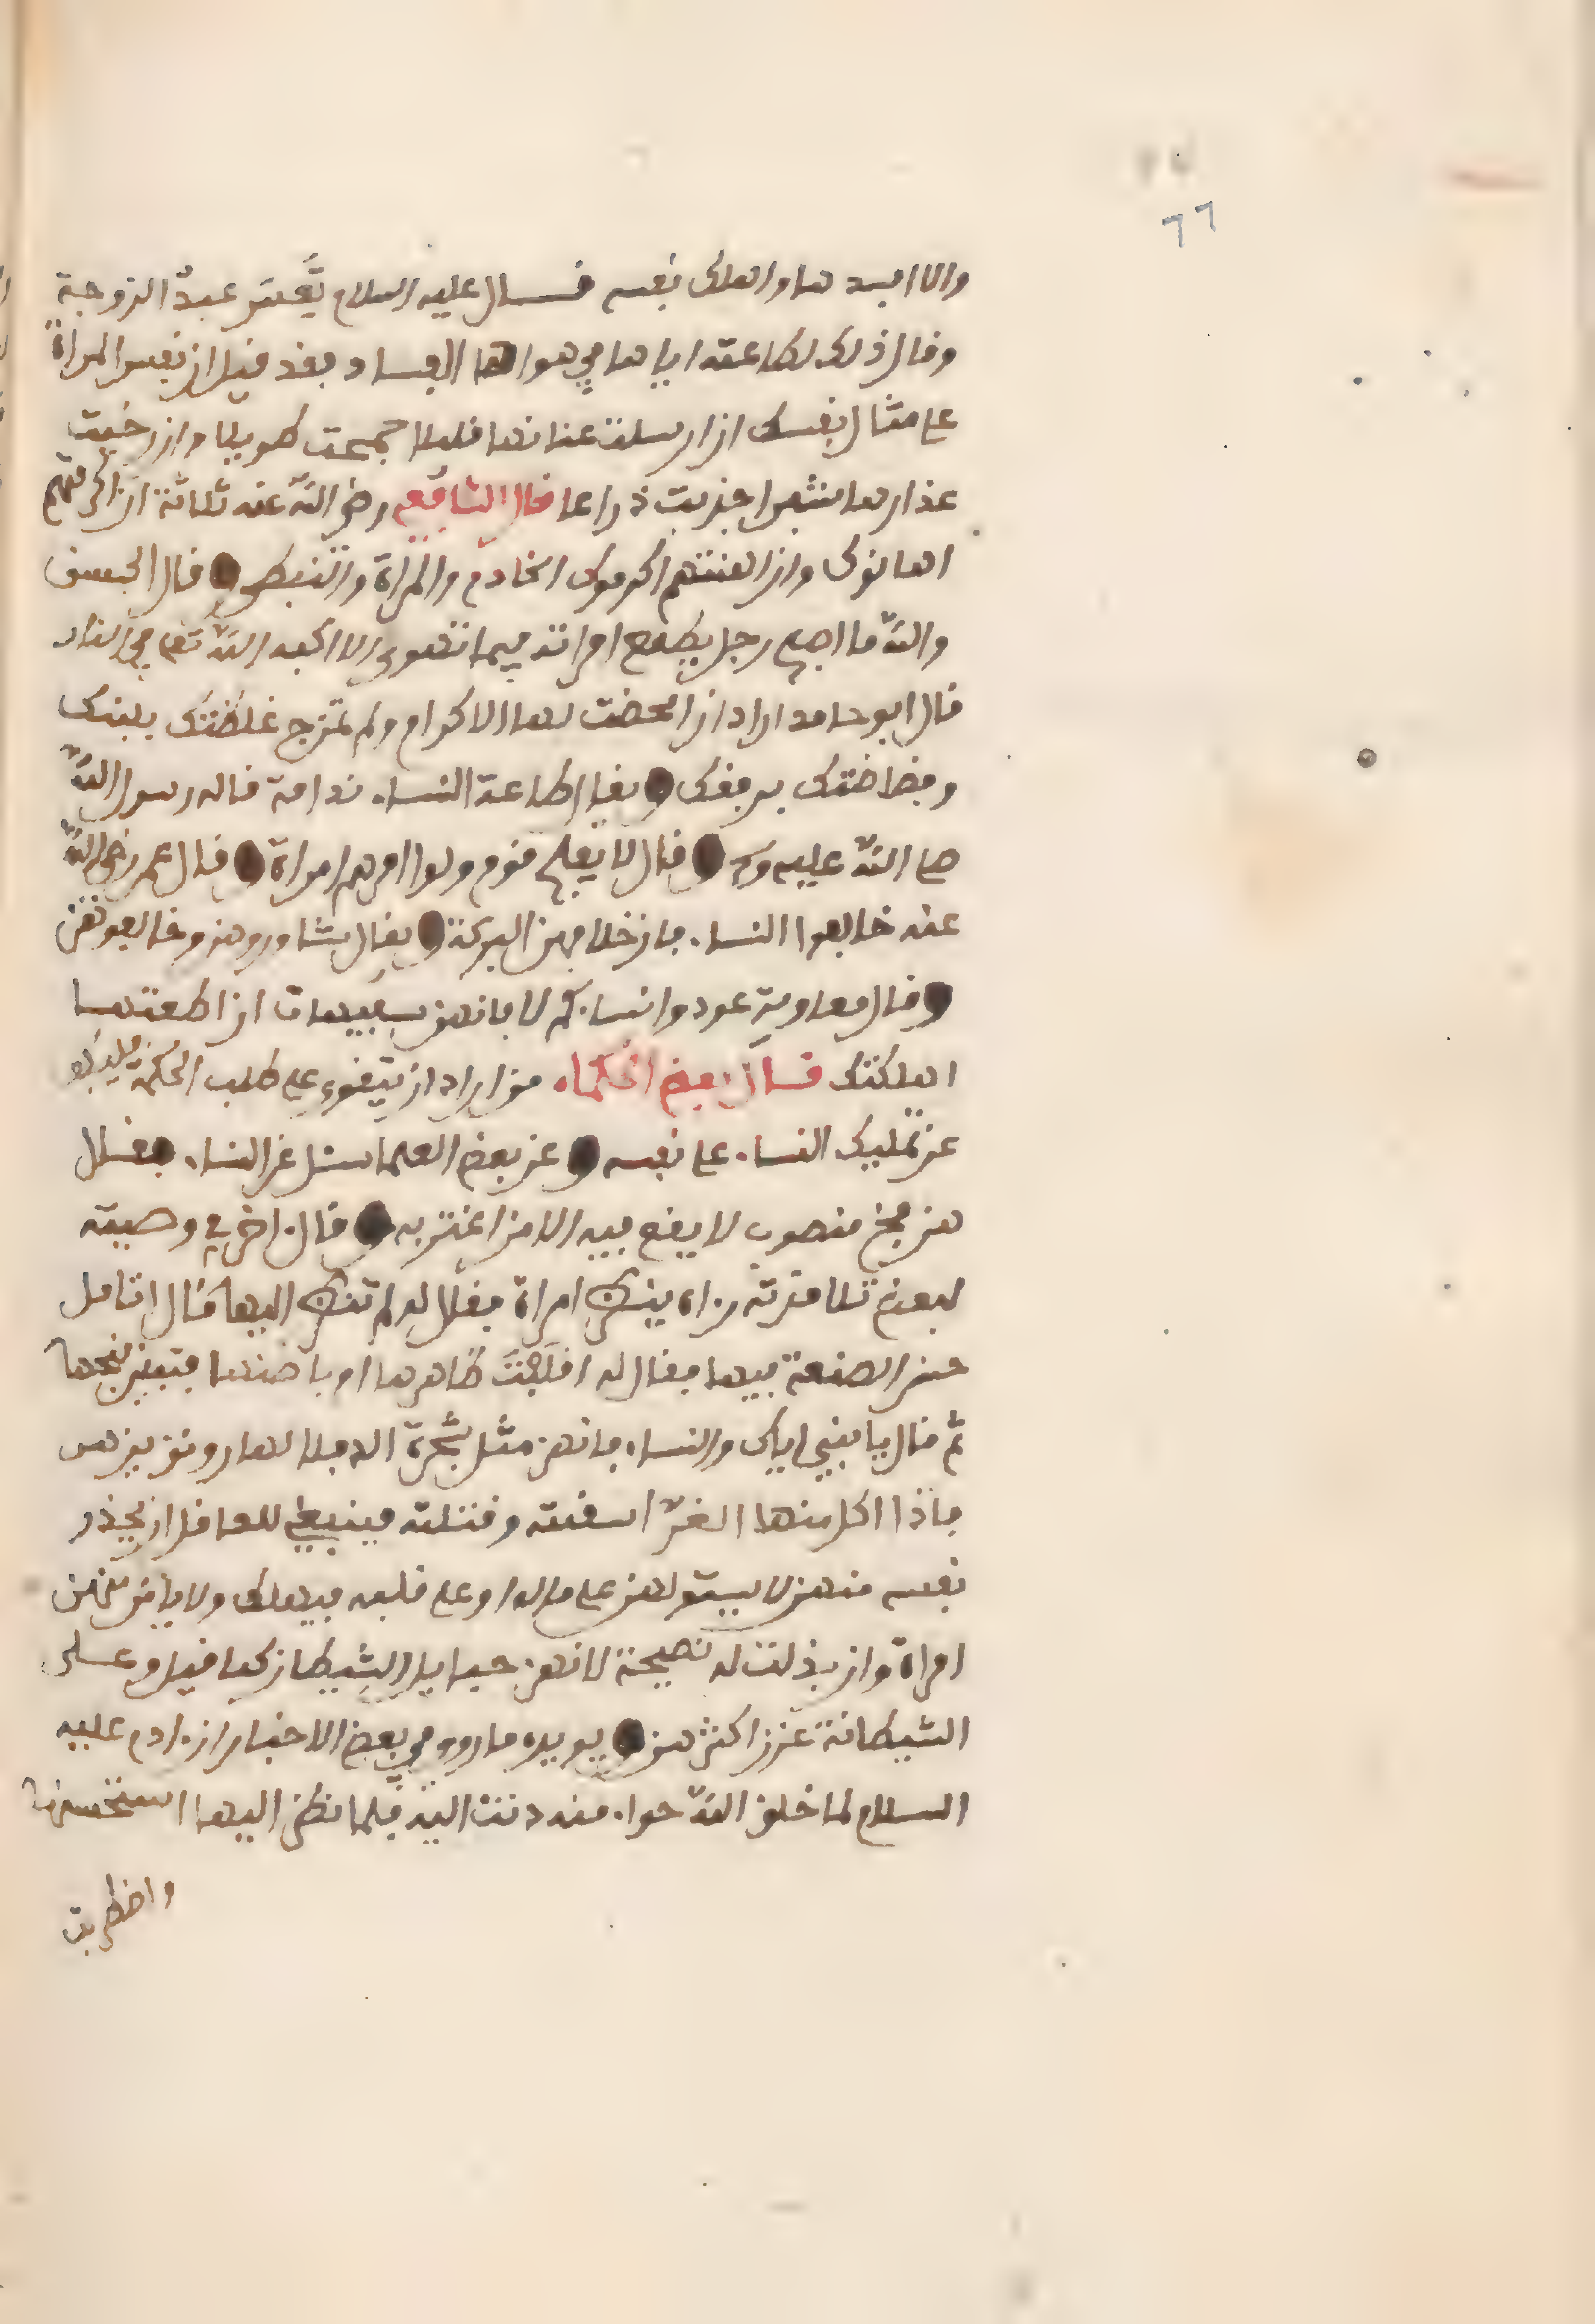 ٦٦
والا افسدها واهلك نفسه قال عليه السلام تعس عبد الزوجة
وقال ذلك لطاعته اياها في هواها الفساد فقد قيل ان نفس المراة
على مثال نفسك ان ارسلت عنانها قليلا جمحت طويلا وان رخيت
عذارها شبرا جذبت ذراعا قال الشافعي رضي الله عنه ثلاثة ان اكرمتهم
اهانوك وان اهنتهم اكرموك الخادم والمراة والنبطي وقال الحسن
والله ما اصبح رجل يطيع امراته فيما تهوى الا اكبه الله تعلى في النار
قال ابو حامد اراد ان امحضت لها الاكرام ولم تمزج غلظتك بلينك
وفظاظتك برفقك ويقال طاعة النساء ندامة قاله رسول الله
صلى الله عليه وسلم وقال لا يفلح قوم ولوا امرهم امراة وقال عمر رضي الله
عنه خالفوا النساء فان خلافهن البركة ويقال شاوروهن وخالفوهن
وقال معاوية عودوا نساءكم لا فانهن سفيهات ان اطعتها
اهلكتك قال بعض الحكماء من اراد ان يتقوى على طلب الحكمة فليكف
عن تمليك النساء على نفسه وعن بعض العلما سئل عن النساء فقال
هن فخ منصوب لا يقع فيه الا من اغتر به وقال اخر في وصيته
لبعض تلامذته راه ينظر امراة فقال له لم تنظر اليها قال اتامل
حسن الصنعة فيها فقال له اقلبت ظاهرها او باطنها فتبين قبحها
ثم قال يا بني اياك والنساء فانهن مثل شجرة الدفلا لها رونق يزهر
فاذا اكل منها الغر اسقمته وقتلته فينبغي للعاقل ان يحذر
نفسه منهن لا يستولهن على ماله او على قلبه فيهلك ولا يامن مكر
امراة وان بذلت له نصيحة لانهن حبايل الشيطان كما قيل وعلى
الشيطانة عزز اكثرهن ويويده ما روي في بعض الاخبار ان ادم عليه
السلام لما خلق الله حواء منه دنت اليه فلما نظر اليها استحسنها
واضطربت